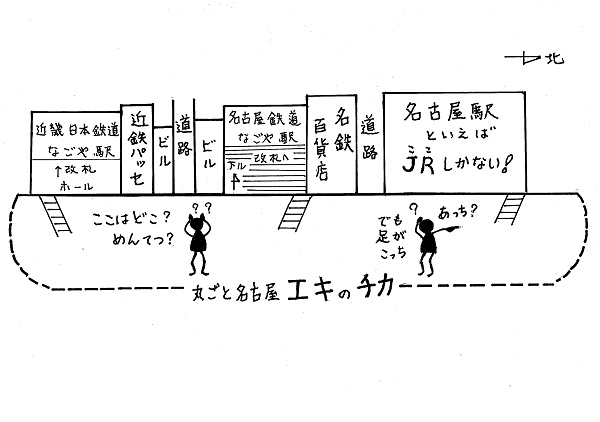 北
近畿日本鉄道
なごや駅
↑改札
ホール
近鉄パッセ
ビル
道路
ビル
名古屋鉄道
なごや駅
改札へ
下ル
↑
名鉄
百貨店
道路
名古屋駅
といえば
ここ
JRしかない!
ここはどこ?
めんてつ?
??
?
あっち?
でも
足が
こっち
丸ごと名古屋エキのチカ